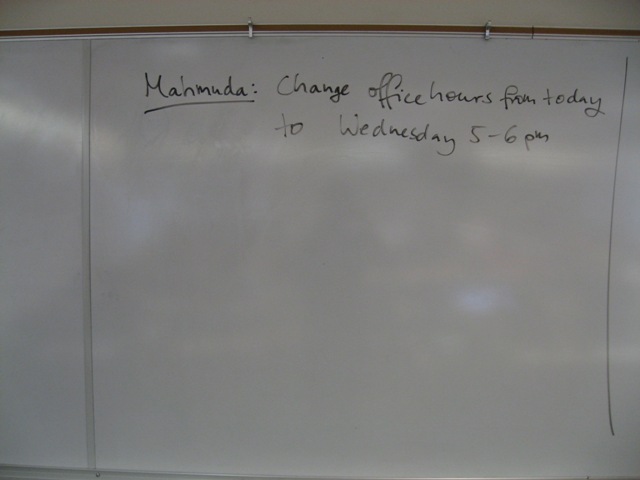 Mahmuda: Change office hours from today
to Wednesday 5-6 pm